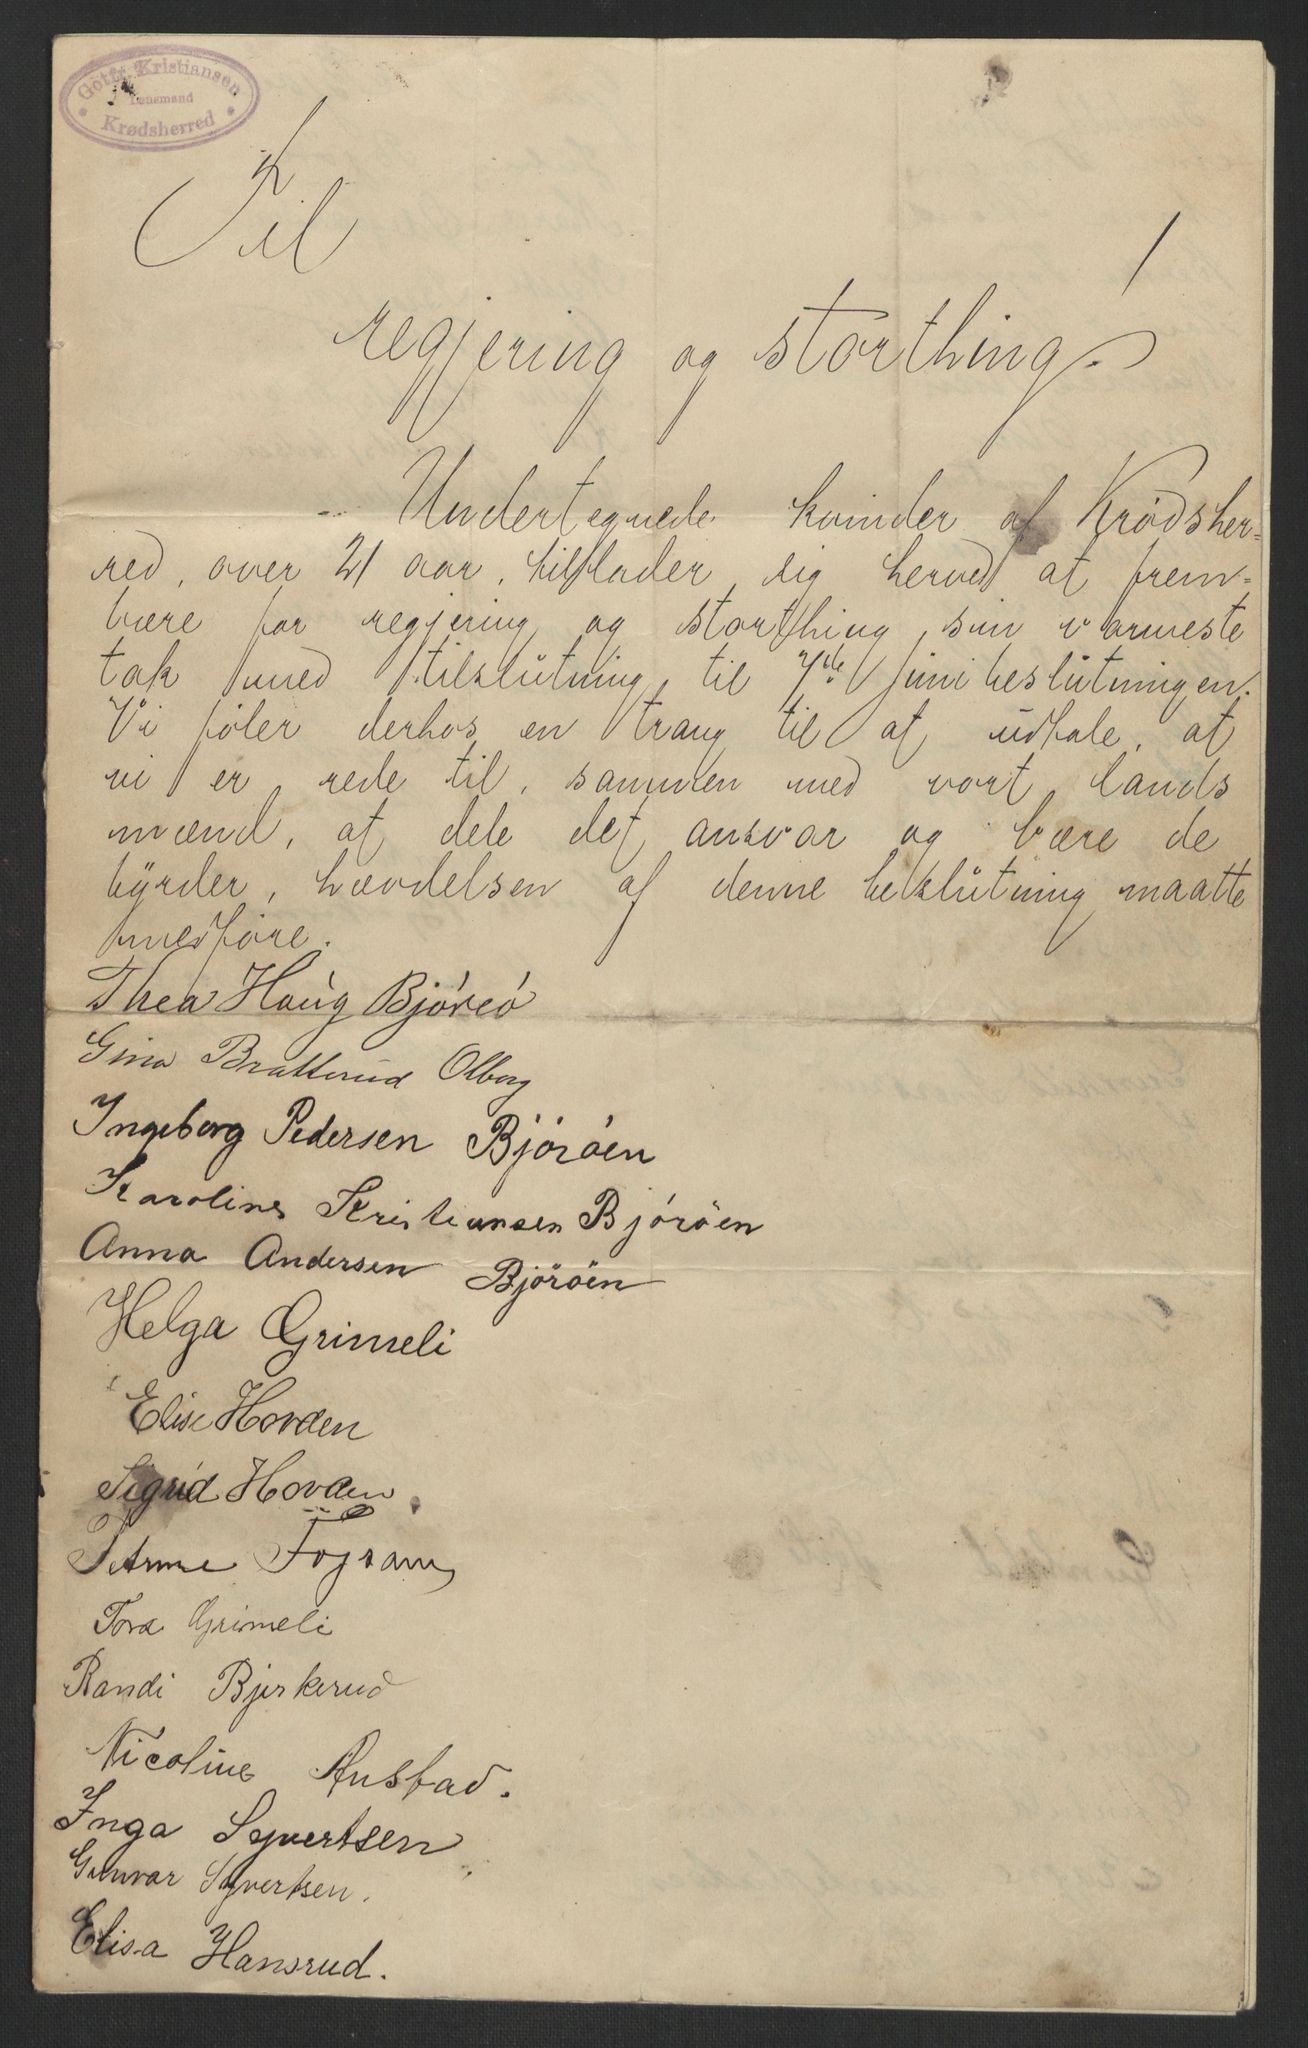 Gottf. Kristiansen
Lensmand
Krødsherred
Til
regjering og storthing!
Undertegnede kvinder af Krødsher-
red, over 21 aar, tillader sig herved at frem-
bære for regjering og storthing sin varmeste
tak med tilslutning til 7de juni beslutningen.
Vi föler derhos en trang til at udtale, at
vi er rede til, sammen med vort lands
mænd, at dele det ansvar og bære de
byrder, hævdelsen af denne beslutning maatte
medføre.
Thea Haug Bjóreó
Gina Bratterud Olberg
Ingeborg Pedersen Björöen
Karoline Kristiansen Bjóröen
Anna Andersen Björöen
Helga Grimeli
Elise Hovden
Sigrid Hovden
Tora Grimeli
Randi Bjerkerud
Nicoline Rustad.
Inga Syvertsen
Gunvor Syvertsen.
Elisa Hansrud.